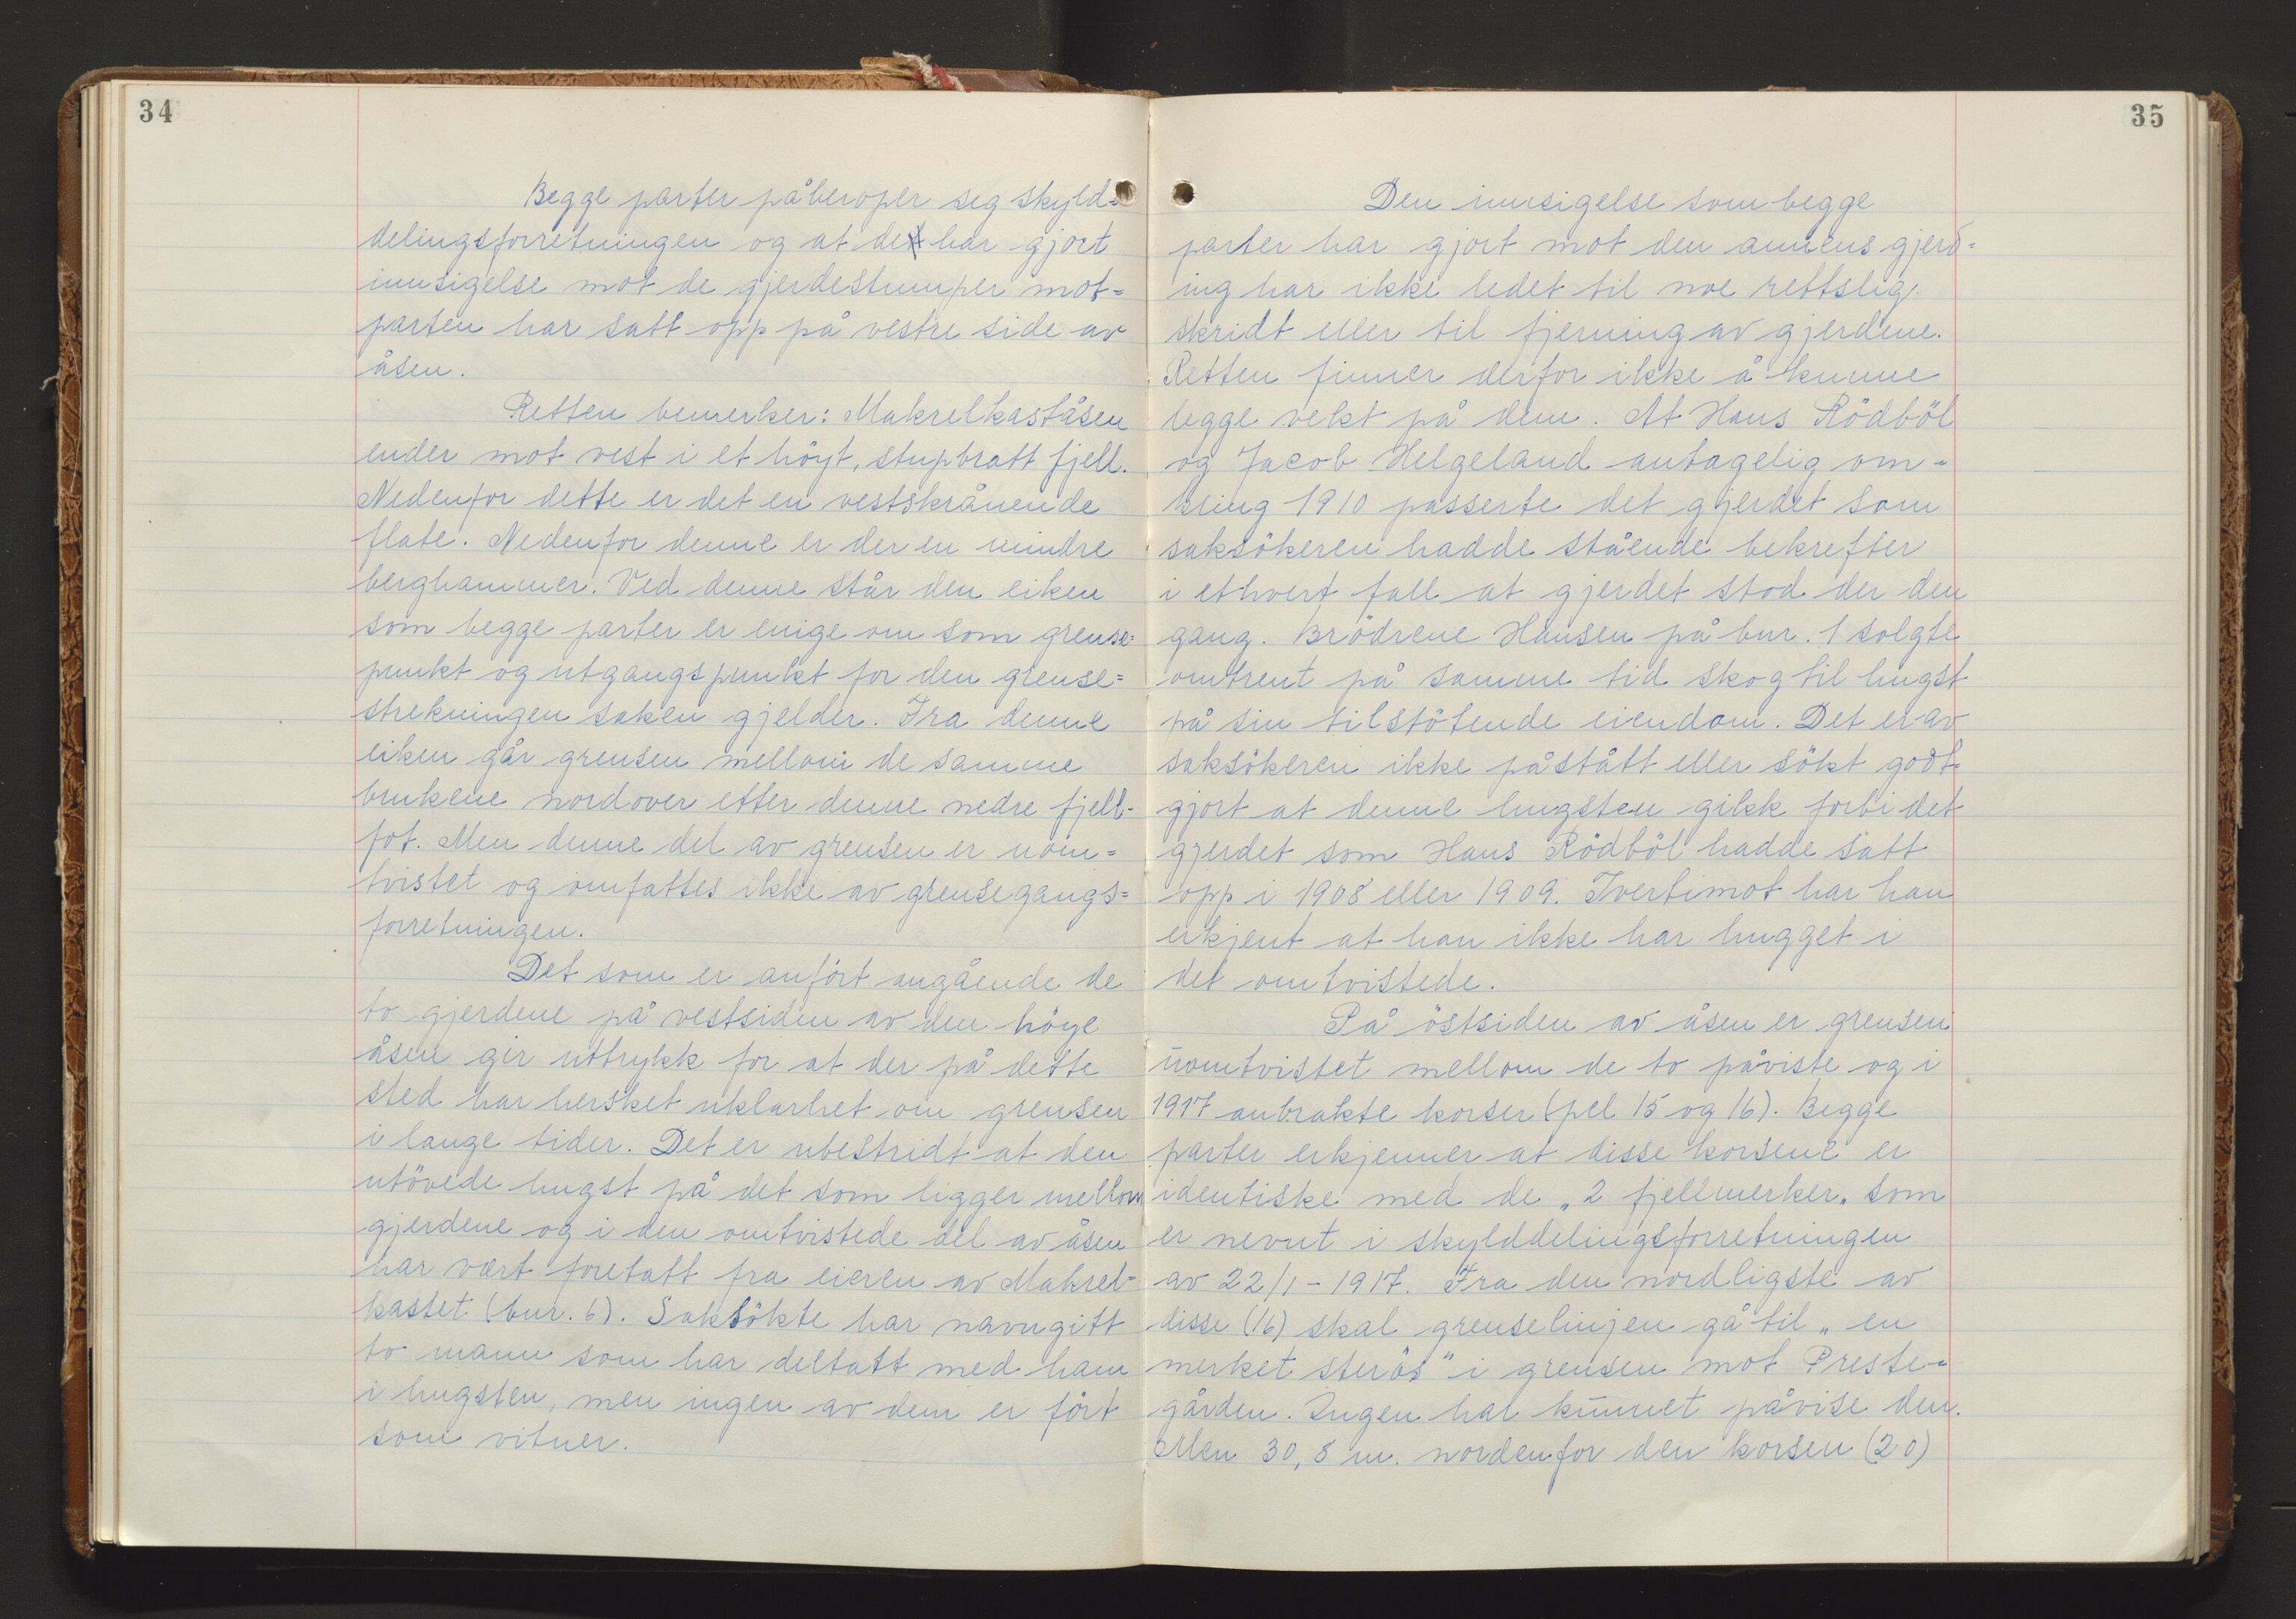 34
Begge parter påberoper seg skyld=
delingsforretningen og at de har gjort
innsigelse mot de gjerdestumper mot=
parten har satt opp på vestre side av
åsen.
Retten bemerker: Makrelkaståsen
ender mot vest i et höyt, stupbratt fjell.
Nedenfor dette er det en vestskrånende
flate. Nedenfor denne er der en mindre
berghammer. Ved denne står den eiken
som begge parter er enige om som grense=
punkt og utgangspunkt for den grense=
strekningen saken gjelder. Fra denne
eiken går grensen mellom de samme
brukene nordover etter denne nedre fjell-
fot. Men denne del av grensen er uom=
tvistet og omfattes ikke av grensegangs=
forretningen.
Det som er anfört angående de
to gjerdene på vestsiden av den höye
åsen gir uttrykk for at der på dette
sted har hersket uklarhet om grensen
i lange tider. Det er ubestridt at den
utövede hugst på det som ligger mellom
gjerdene og i den omtvistede del av åsen
har vært foretatt fra eieren av Makrel-
kastet (bnr. 6). Saksökte har navngitt
to mann som har deltatt med ham
i hugsten, men ingen av dem er fört
som vitner.
35
Den innsigelse som begge
parter har gjort mot den annens gjerd-
ing har ikke ledet til noe rettslig
skridt eller til fjerning av gjerdene.
Retten finner derfor ikke å kunne
legge vekt på dem. At Hans Rödböl
og Jacob Helgeland antagelig om-
kring 1910 passerte det gjerdet som
saksökeren hadde stående bekrefter
i ethvert fall at gjerdet stod der den
gang. Brödrene Hansen på bnr. 1 solgte
omtrent på samme tid skog til hugst
på sin tilstötende eiendom. Det er av
saksökeren ikke påstått eller sökt godt-
gjort at denne hugsten gikk forbi det
gjerdet som Hans Rödböl hadde satt
opp i 1908 eller 1909. Tvertimot har han
erkjent at han ikke har hugget i
det omtvistede.
På östsiden av åsen er grensen
uomtvistet mellom de to påviste og i
1917 anbrakte korser (pel 15 og 16). Begge
parter erkjenner at disse korsene er
identiske med de „2 fjellmerker„ som
er nevnt i skylddelingsforretningen
av 22/1 - 1917. Fra den nordligste av
disse (16) skal grenselinjen gå til „en
merket sterös" i grensen mot Preste-
gården. Ingen har kunnet påvise den.
Men 30,8 m. nordenfor den korsen (20)